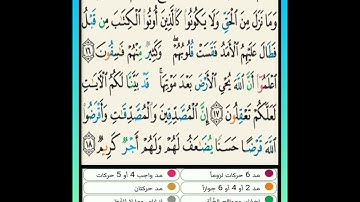 وَمَا نَزَلَ مِنَ الْحَقِّ وَلَا يَكُونُوا كَالَّذِينَ أُوتُوا الْكِتَابَ مِن قَبْلُ
فَطَالَ عَلَيْهِمُ الْأَمَدُ فَقَسَتْ قُلُوبُهُمْ ۖ وَكَثِيرٌ مِّنْهُمْ فَاسِقُونَ ١٦
اعْلَمُوا أَنَّ اللَّهَ يُحْيِ الْأَرْضَ بَعْدَ مَوْتِهَا ۚ قَدْ بَيَّنَّا لَكُمُ الْآيَاتِ
لَعَلَّكُمْ تَعْقِلُونَ ١٧ إِنَّ الْمُصَّدِّقِينَ وَالْمُصَّدِّقَاتِ وَأَقْرَضُوا
اللَّهَ قَرْضًا حَسَنًا يُضَاعَفُ لَهُمْ وَلَهُمْ أَجْرٌ كَرِيمٌ ١٨
مد 6 حركات لزوماً مد واجب 4 أو 5 حركات
مد 2 أو 4 أو 6 جوازاً مد حركتان